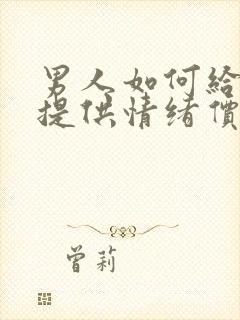 男人如何給
提供情绪價
曾莉